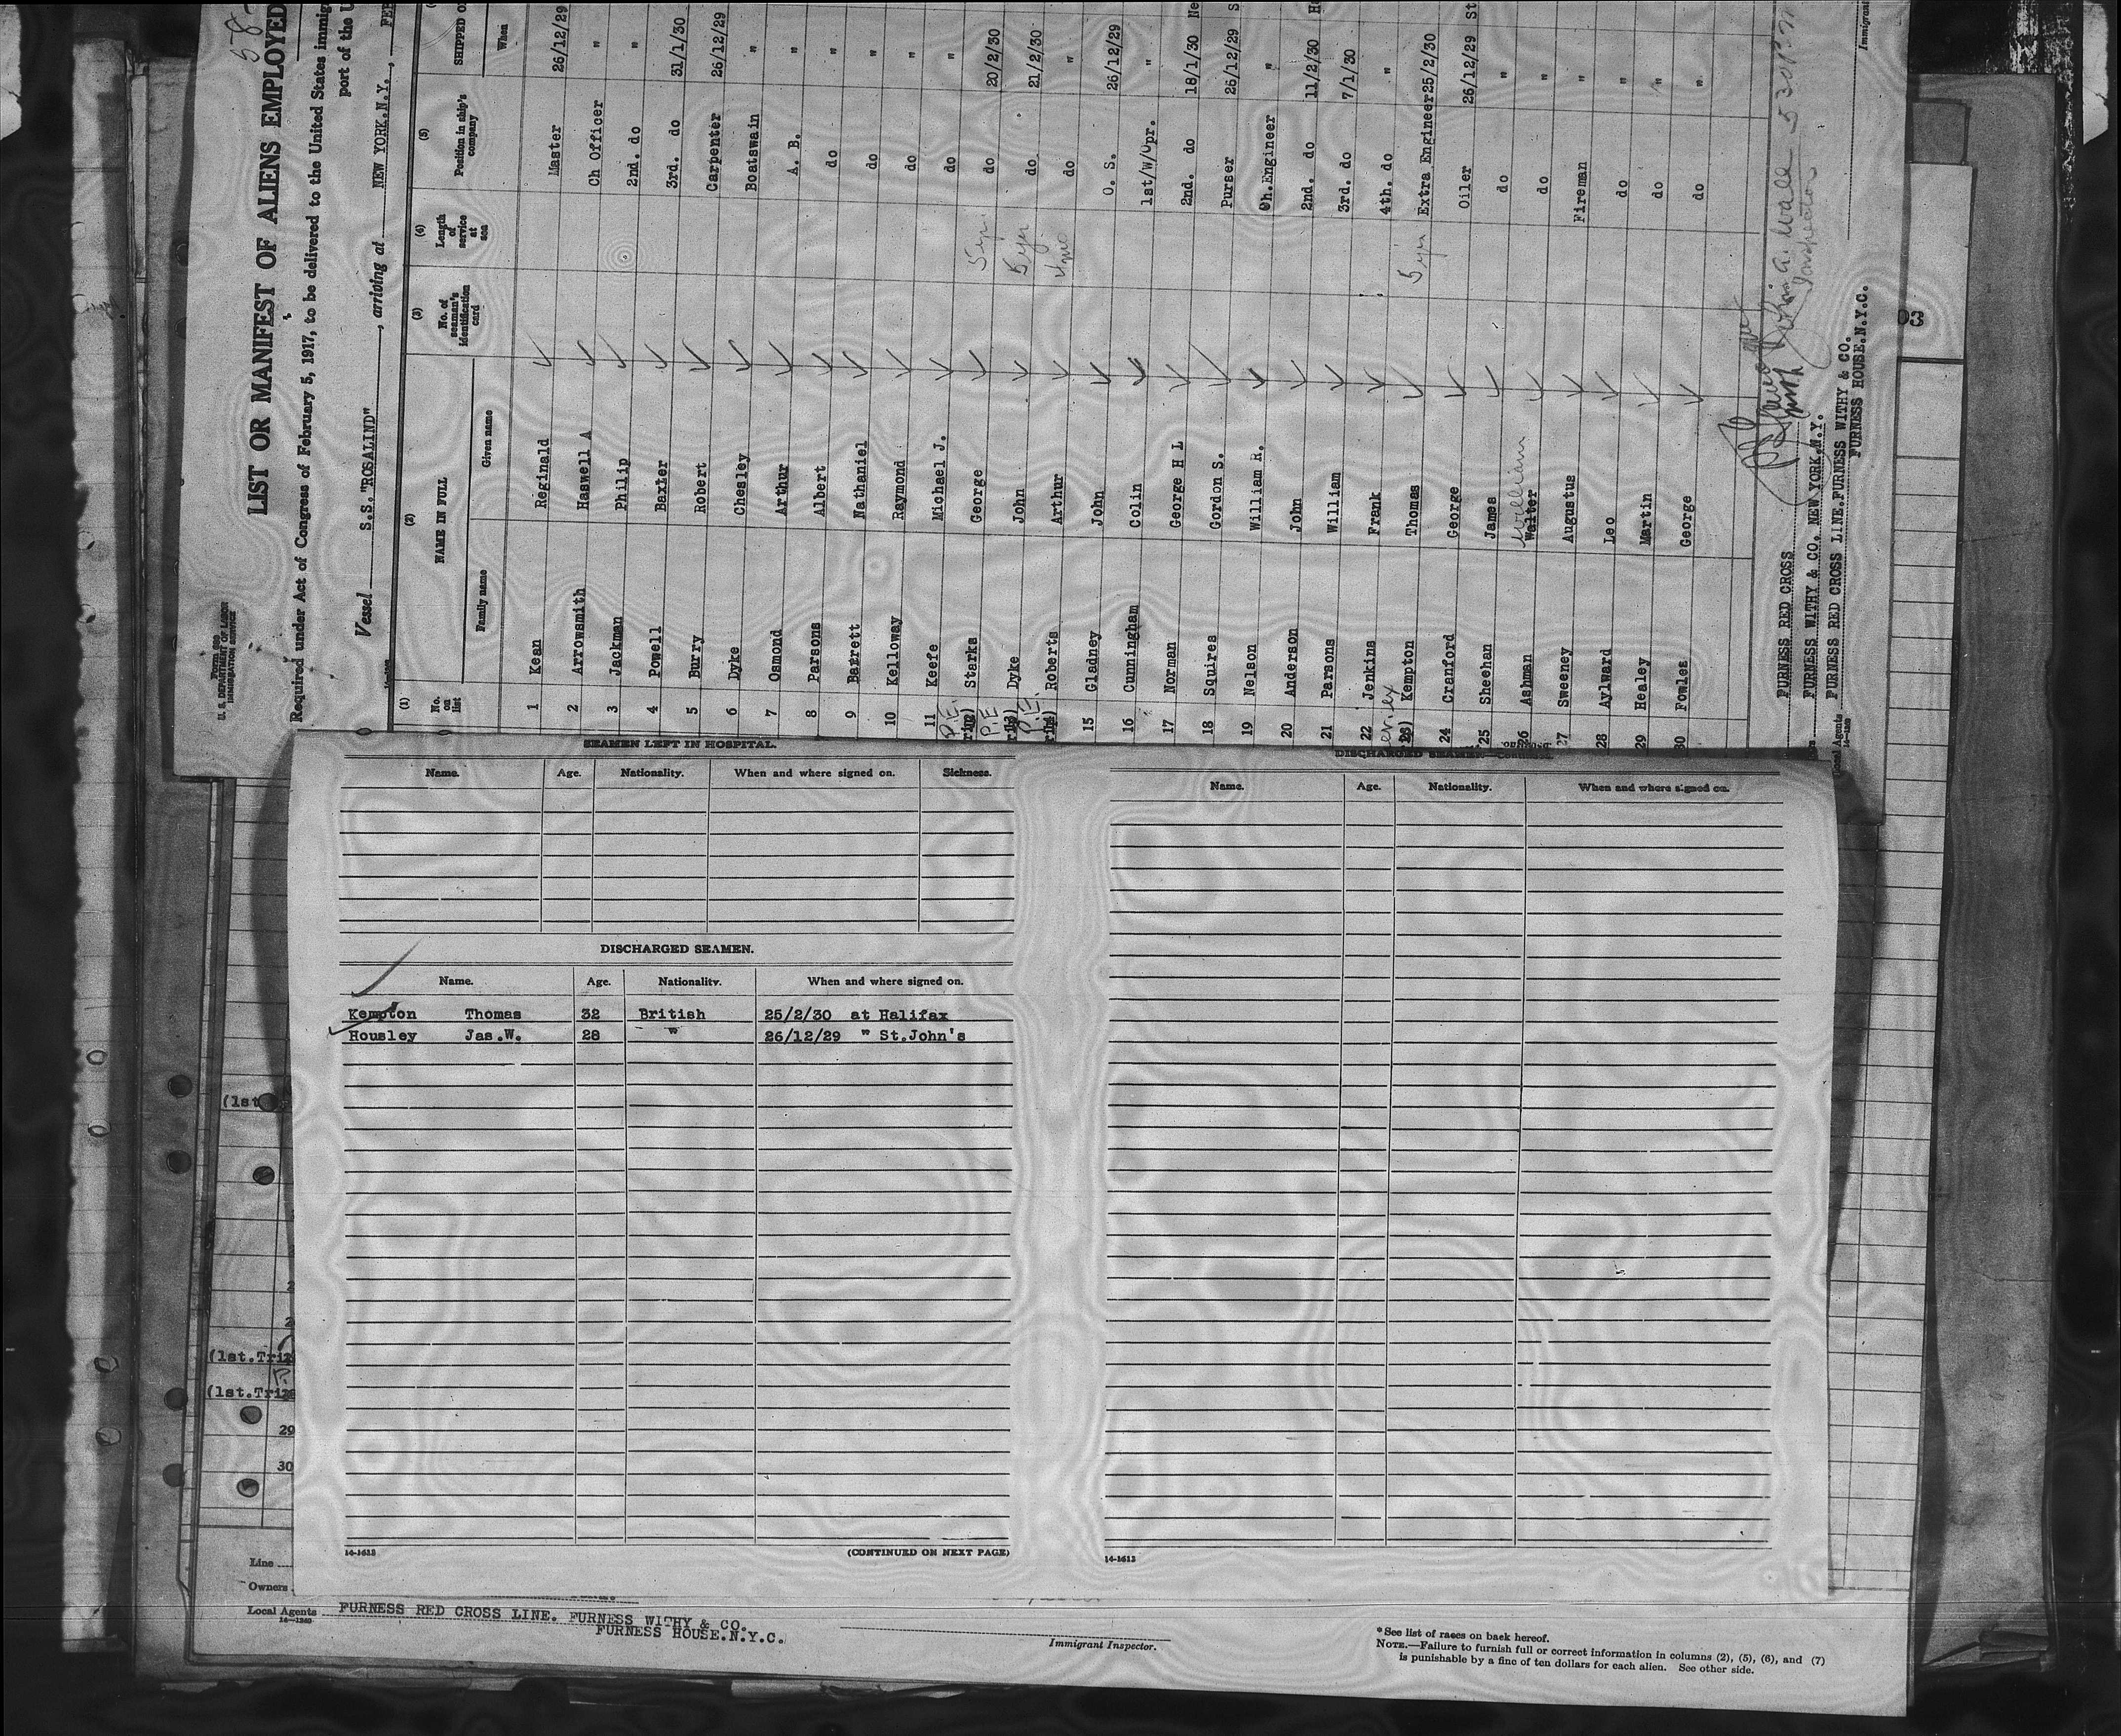 58-
LIST OR MANIFEST OF ALIENS EMPLOYED
Form 689
U. S. DEPARTMENT OF LABOR
IMMIGRATION SERVICE
Required under Act of Congress of February 5, 1917, to be delivered to the United States immig
port of the U
Vessel S.S."ROSALIND", arriving at NEW YORK.N.Y., FEB
(1) (2) (3) (4) (5)
No. on list NAME IN FULL No. of seaman's identification card Length of service at sea Position in ship's company SHIPPED O
Family name Given name When
1 Kean Reginald Master 26/12/29
2 Arrowsmith Haswell A Ch Officer "
3 Jackman Philip 2nd. do "
4 Powell Baxter 3rd. do 31/1/30
5 Burry Robert Carpenter 26/12/29
6 Dyke Chesley Boatswain "
7 Osmond Arthur A. B. "
8 Parsons Albert do "
9 Barrett Nathaniel do "
10 Kelloway Raymond do "
11 Keefe Michael J. do "
P.E. Starks George 5 yr do 20/2/30
P.E Dyke John 5 yrs do 21/2/30
P.E. Roberts Arthur 4 mo do "
15 Gladney John O. S. 26/12/29
16 Cunningham Colin 1st/W/Opr. "
17 Norman George H L 2nd. do 18/1/30 Ne
18 Squires Gordon S. Purser 26/12/29 S
19 Nelson William R. Ch.Engineer "
20 Anderson John 2nd. do 11/2/30 H
21 Parsons William 3rd. do 7/1/30
22 Jenkins Frank 4th. do "
23) Kempton Thomas 5 yrs Extra Engineer 25/2/30
24 Cranford George Oiler 26/12/29 St
25 Sheehan James do "
26 Ashman William Walter do "
27 Sweeney Augustus Fireman "
28 Aylward Leo do "
29 Healey Martin do "
30 Fowles George do "
John A. Wall 5 30 P. M
Inspector
Immigrant
FURNESS RED CROSS
FURNESS WITHY & CO. NEW YORK.N.Y.
Local Agents FURNESS RED CROSS LINE.FURNESS WITHY & CO.
FURNESS HOUSE.N.Y.C.
03
SEAMEN LEFT IN HOSPITAL.
Name. Age. Nationality. When and where signed on. Sickness.
DISCHARGED SEAMEN.
Name. Age. Nationality. When and where signed on.
Kempton Thomas 32 British 25/2/30 at Halifax
Housley Jas.W. 28 " 26/12/29 " St.John's
14-1613
(CONTINUED ON NEXT PAGE)
DISCHARGED SEAMEN.—Continued.
Name. Age. Nationality. When and where signed on.
14-1613
(1st
(1st.Trip
(1st.Trip
29
30
Line
Owners
Local Agents FURNESS RED CROSS LINE. FURNESS WITHY & CO.
FURNESS HOUSE.N.Y.C.
14-1240
Immigrant Inspector.
*See list of races on back hereof.
NOTE.—Failure to furnish full or correct information in columns (2), (5), (6), and (7)
is punishable by a fine of ten dollars for each alien. See other side.